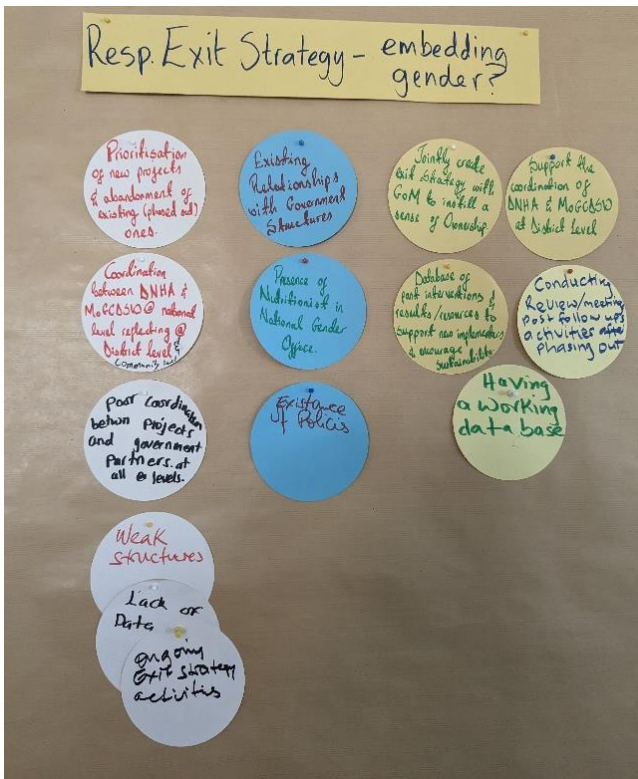 Resp. Exit Strategy - embedding
gender?
Prioritisation
of new projects
& abandonment of
existing (phased out)
ones.
Coordination
between DNHA &
MoGCDSW @ national
level reflecting @
District level &
Community level
Poor Coordination
betwen Projects
and government
Partners at
all @ levels.
Weak
structures
Lack of
Data
ongoing
Exit strategy
activities
Existing
Relationships
with Government
Structures
Presence of
Nutritionist in
National Gender
Office.
Existance
of Policis
Jointly create
exit strategy with
GoM to instill a
sense of Ownership.
Support the
coordination of
DNHA & MoGCDSW
at District Level
Database of
past interventions &
results/resources to
support new implementers
& encourage
Sustainability
Conducting
Review/meeting
post follow ups
activities after
phasing out
Having
a working
data base